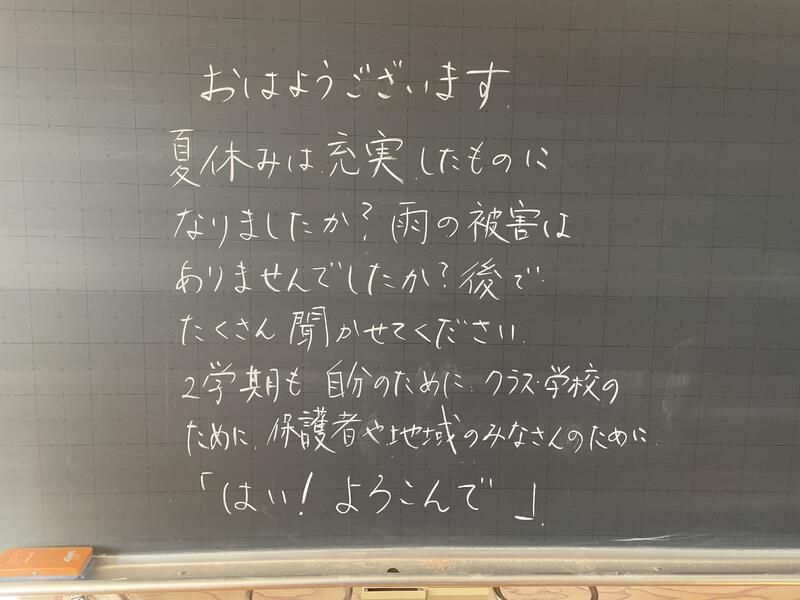 おはようございます.
夏休みは充実したものに
なりましたか?雨の被害は
ありませんでしたか?後で
たくさん聞かせてください.
2学期も自分のために.クラス・学校の
ために.保護者や地域のみなさんのために
「はい!よろこんで」.